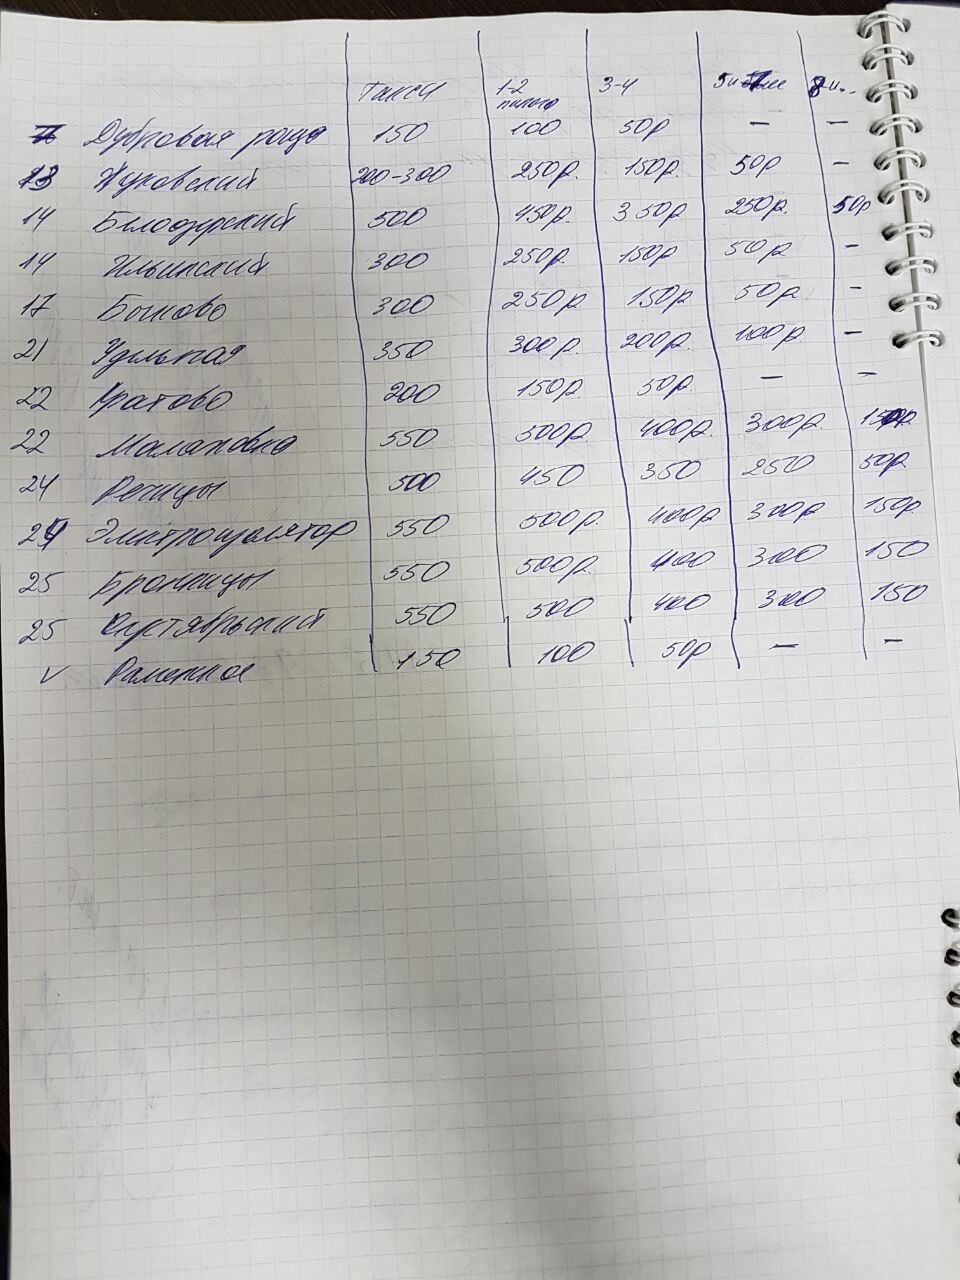 Такси 1-2 3-4 5 и 7 8 и..
пилота
Дубровая роща 150 100 50р — —
13 Жуковский 200-300 250р. 150р. 50р —
14 Белоозёрский 500 450р. 350р 250р. 50р
14 Ильинский 300 250р. 150р 50р —
17 Быково 300 250р 150р 50р —
21 Удельная 350 300р. 200р. 100р. —
22 Кратово 200 150р 50р. — —
22 Малаховка 550 500р. 400р. 300р. 150р.
24 Речицы 500 450 350 250 50р.
24 Электроизолятор 550 500р. 400р 300р 150р
25 Бронницы 550 500р. 400 300 150
25 Октябрьский 550 500 400 300 150
V Раменное 150 100 50р — —